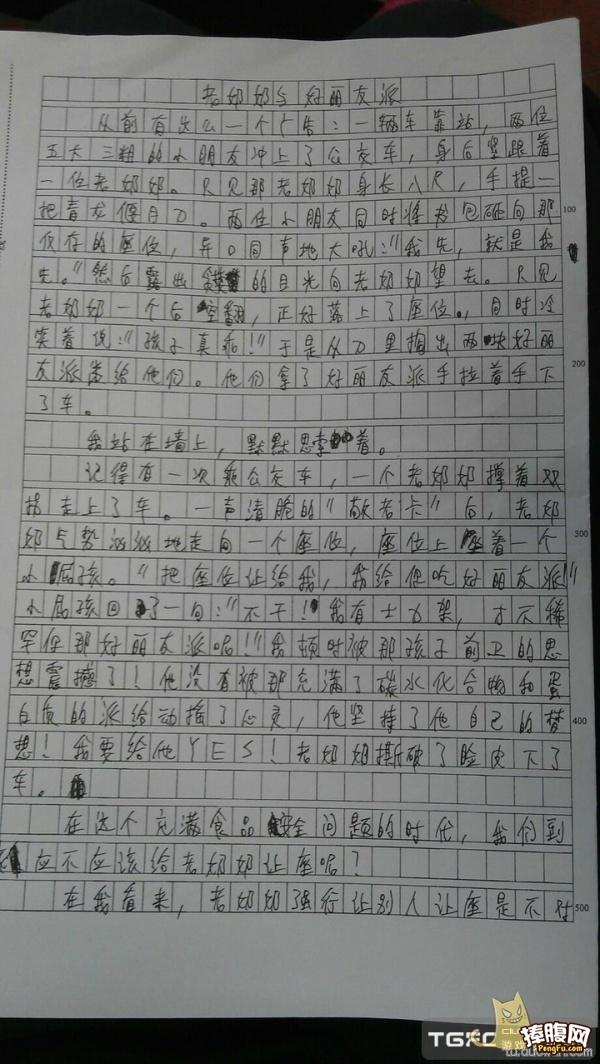 老奶奶与好丽友派
从前有这么一个广告：一辆车靠站，两位
五大三粗的小朋友冲上了公交车，身后紧跟着
一位老奶奶。只见那老奶奶身长八尺，手提一
把青龙偃月刀。两位小朋友同时将书包砸向那
仅存的座位，异口同声地大吼："我先，就是我
先。"然后露出的目光向老奶奶望去。只见
老奶奶一个后空翻，正好落上了座位。同时冷
笑着说："孩子真乖！"于是从刀里掏出两块好丽
友派发给他们。他们拿了好丽友派手拉着手下
了车。
我站在墙上，默默思索着。
记得有一次乘公交车，一个老奶奶撑着双
拐走上了车。一声清脆的"敬老卡"后，老奶
奶气势汹汹地走向一个座位，座位上座着一个
小屁孩。"把座位让给我，我给你吃好丽友派！"
小屁孩回了一句："不干！我有士力架，才不稀
罕你那好丽友派呢！"我顿时被那孩子前卫的思
想震撼了！他没有被那充满了碳水化合物和蛋
白质的派给动摇了心灵，他坚持了他自己的梦
想！我要给他YES！老奶奶撕破了脸皮下了
车。
在这个充满食品安全问题的时代，我们到
应不应该给老奶奶让座呢？
在我看来，老奶奶强行让别人让座是不对
100
200
300
400
500
TGFC
游戏
捧腹网
PengFu.com